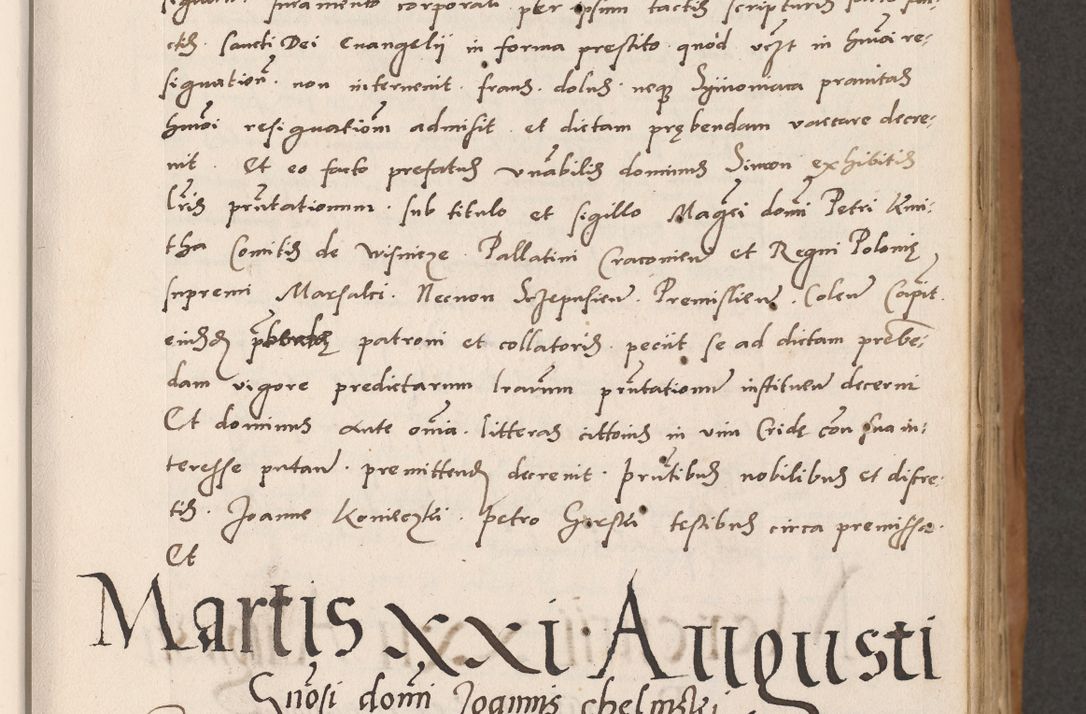 iuramento corporali per ipsum tactis scripturis
ctis sancti Dei Evangelÿ in forma prestito quod in hmoi re:
signation. non intervenit fraus. dolus. neqz Symoniaca pravitas
hmoi resignationem admisit. et dictam prębendam vaccare decre:
vit. Et eo facto prefatus vnabilis dominus Simon exhibitis
lris prntationum. sub titulo et sigillo Magci domi Petri Kmi:
tha Comitis de Wisnicze Pallatini Cracovien et Regni Polonię
supremi Marsalci. Necnon Sczepusien. Premislien. Colen Capit.
eiusd patroni et collatoris. peciit se ad dictam prebe:
dam vigore predictarum lrarum prntationum instituen decerni
Et dominus ante omia. litteras cittorias in vim Cridę con sua in:
teresse putan. premittend decrevit. Prntibus nobilibus et discre:
tis. Joanne Konieczki. Petro testibus circa premissa.
Et
Martis xxi Augusti
domi Joannis chelmski